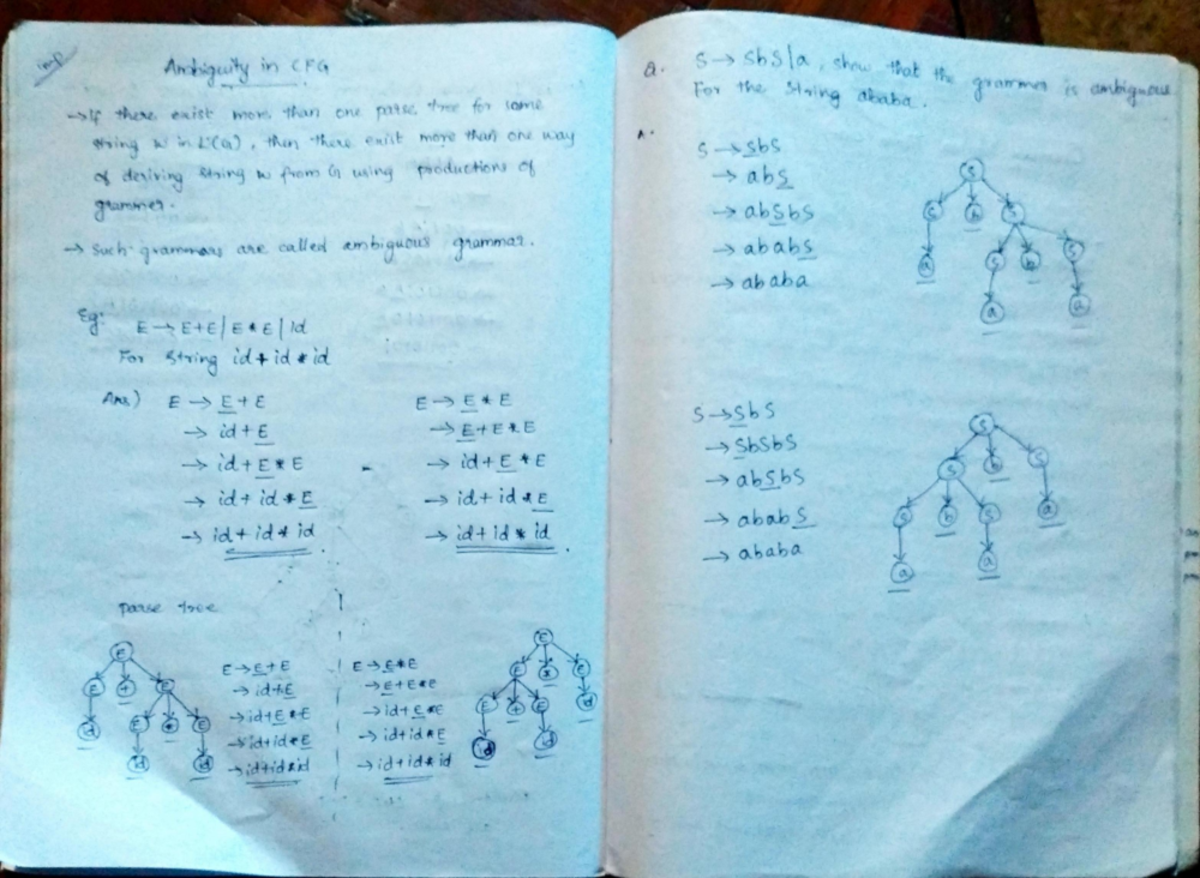 imp
Ambiguity in CFG
→ If there exist more than one parse tree for some
string w in L(G), then there exist more than one way
of deriving string w from G using productions of
grammer.
→ Such grammars are called ambiguous grammar.
Eg:
E → E+E | E * E | id
For String id + id * id
Ans) E → E + E
→ id + E
→ id + E * E
→ id + id * E
→ id + id * id
E → E * E
→ E + E * E
→ id + E * E
→ id + id * E
→ id + id * id
parse tree
E
E + E
id E * E
id id
E → E + E
→ id + E
→ id + E * E
→ id + id * E
→ id + id * id
E → E * E
→ E + E * E
→ id + E * E
→ id + id * E
→ id + id * id
E
E * E
E + E id
id id
Q. S → SbS | a, show that the grammer is ambiguous
For the string ababa.
A.
S → SbS
→ abS
→ abSbS
→ ababS
→ ababa
S
S b S
a S b S
a a
S → SbS
→ SbSbS
→ abSbS
→ ababS
→ ababa
S
S b S
S b S a
a a